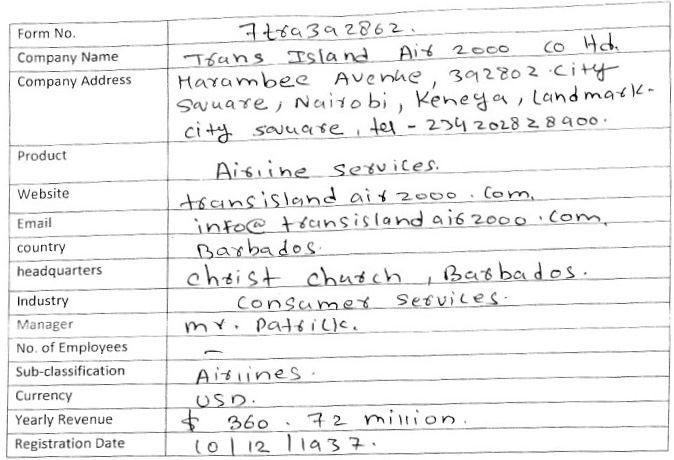 Form No. 7tra3a2862.
Company Name Trans Island Air 2000 co Htd.
Company Address Harambee Avenue, 392802.city
Savuare, Nairobi, Keneya, Landmark-
city savuare, tel - 234 202828900.
Product Airline services.
Website transisland air 2000.com.
Email info@transisland air2000.com.
country Barbados.
headquarters christ church, Barbados.
Industry Consumer Services.
Manager mr. Patrick.
No. of Employees -
Sub-classification Airlines.
Currency USD.
Yearly Revenue $ 360.72 million.
Registration Date 10/12/1937.